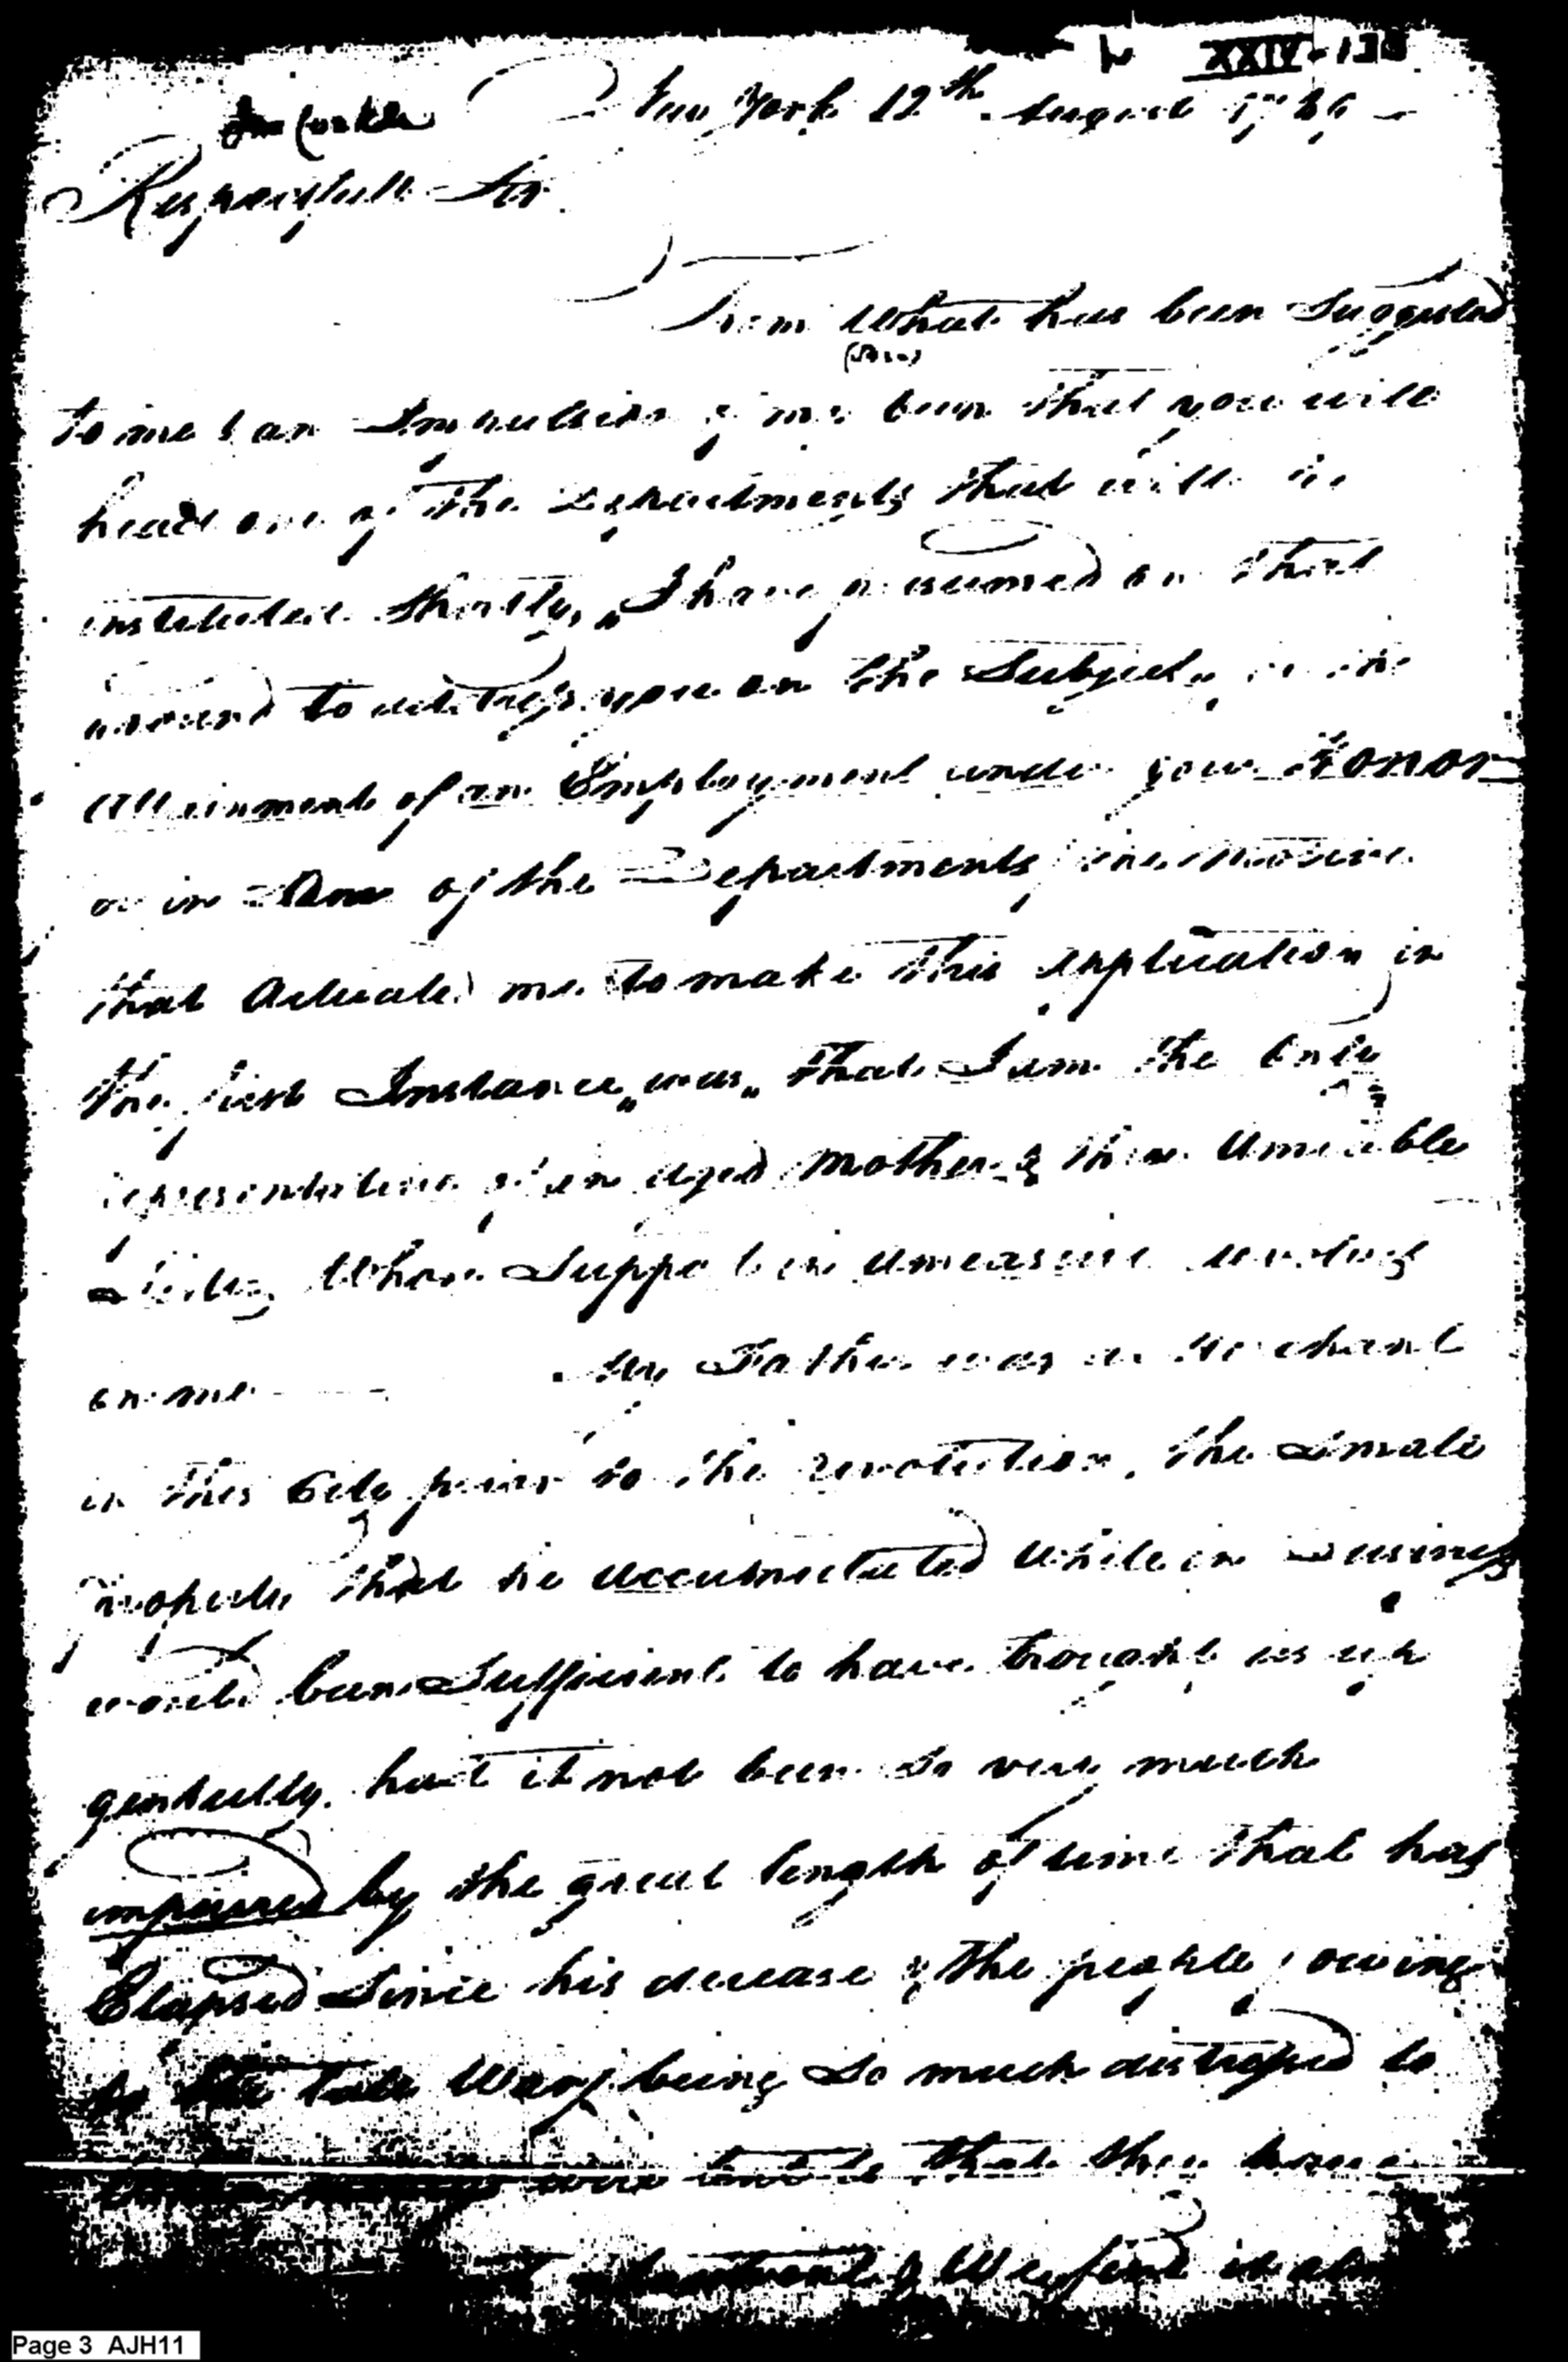 XXIV-138
New York 12th August 1789
Respectfull Sir
From What has been Suggested
to me & an Impulsion of my own that you will
head one of the Departments that will be
instituted Shortly, I have presumed on that
ground to address you on the Subject, in the
Attainment of an Employment under your Honor
or in One of the Departments, the motive
that Actuated me to make this application in
the first Instance, was, that I am the Only
representative of an aged Mother & three Amiable
Sisters, Whose Support in Ameasure revolves
on me My Father was a Merchant
in this City prior to the revolution, the Small
property that he accumulated While in Business
would been Sufficient to have brought us up
genteelly, had it not been So very much
impaired by the great length of time that has
Elapsed Since his decease & the people, owing
to the late War, being So much distressed to
were that they have
& We find it
Page 3 AJH11